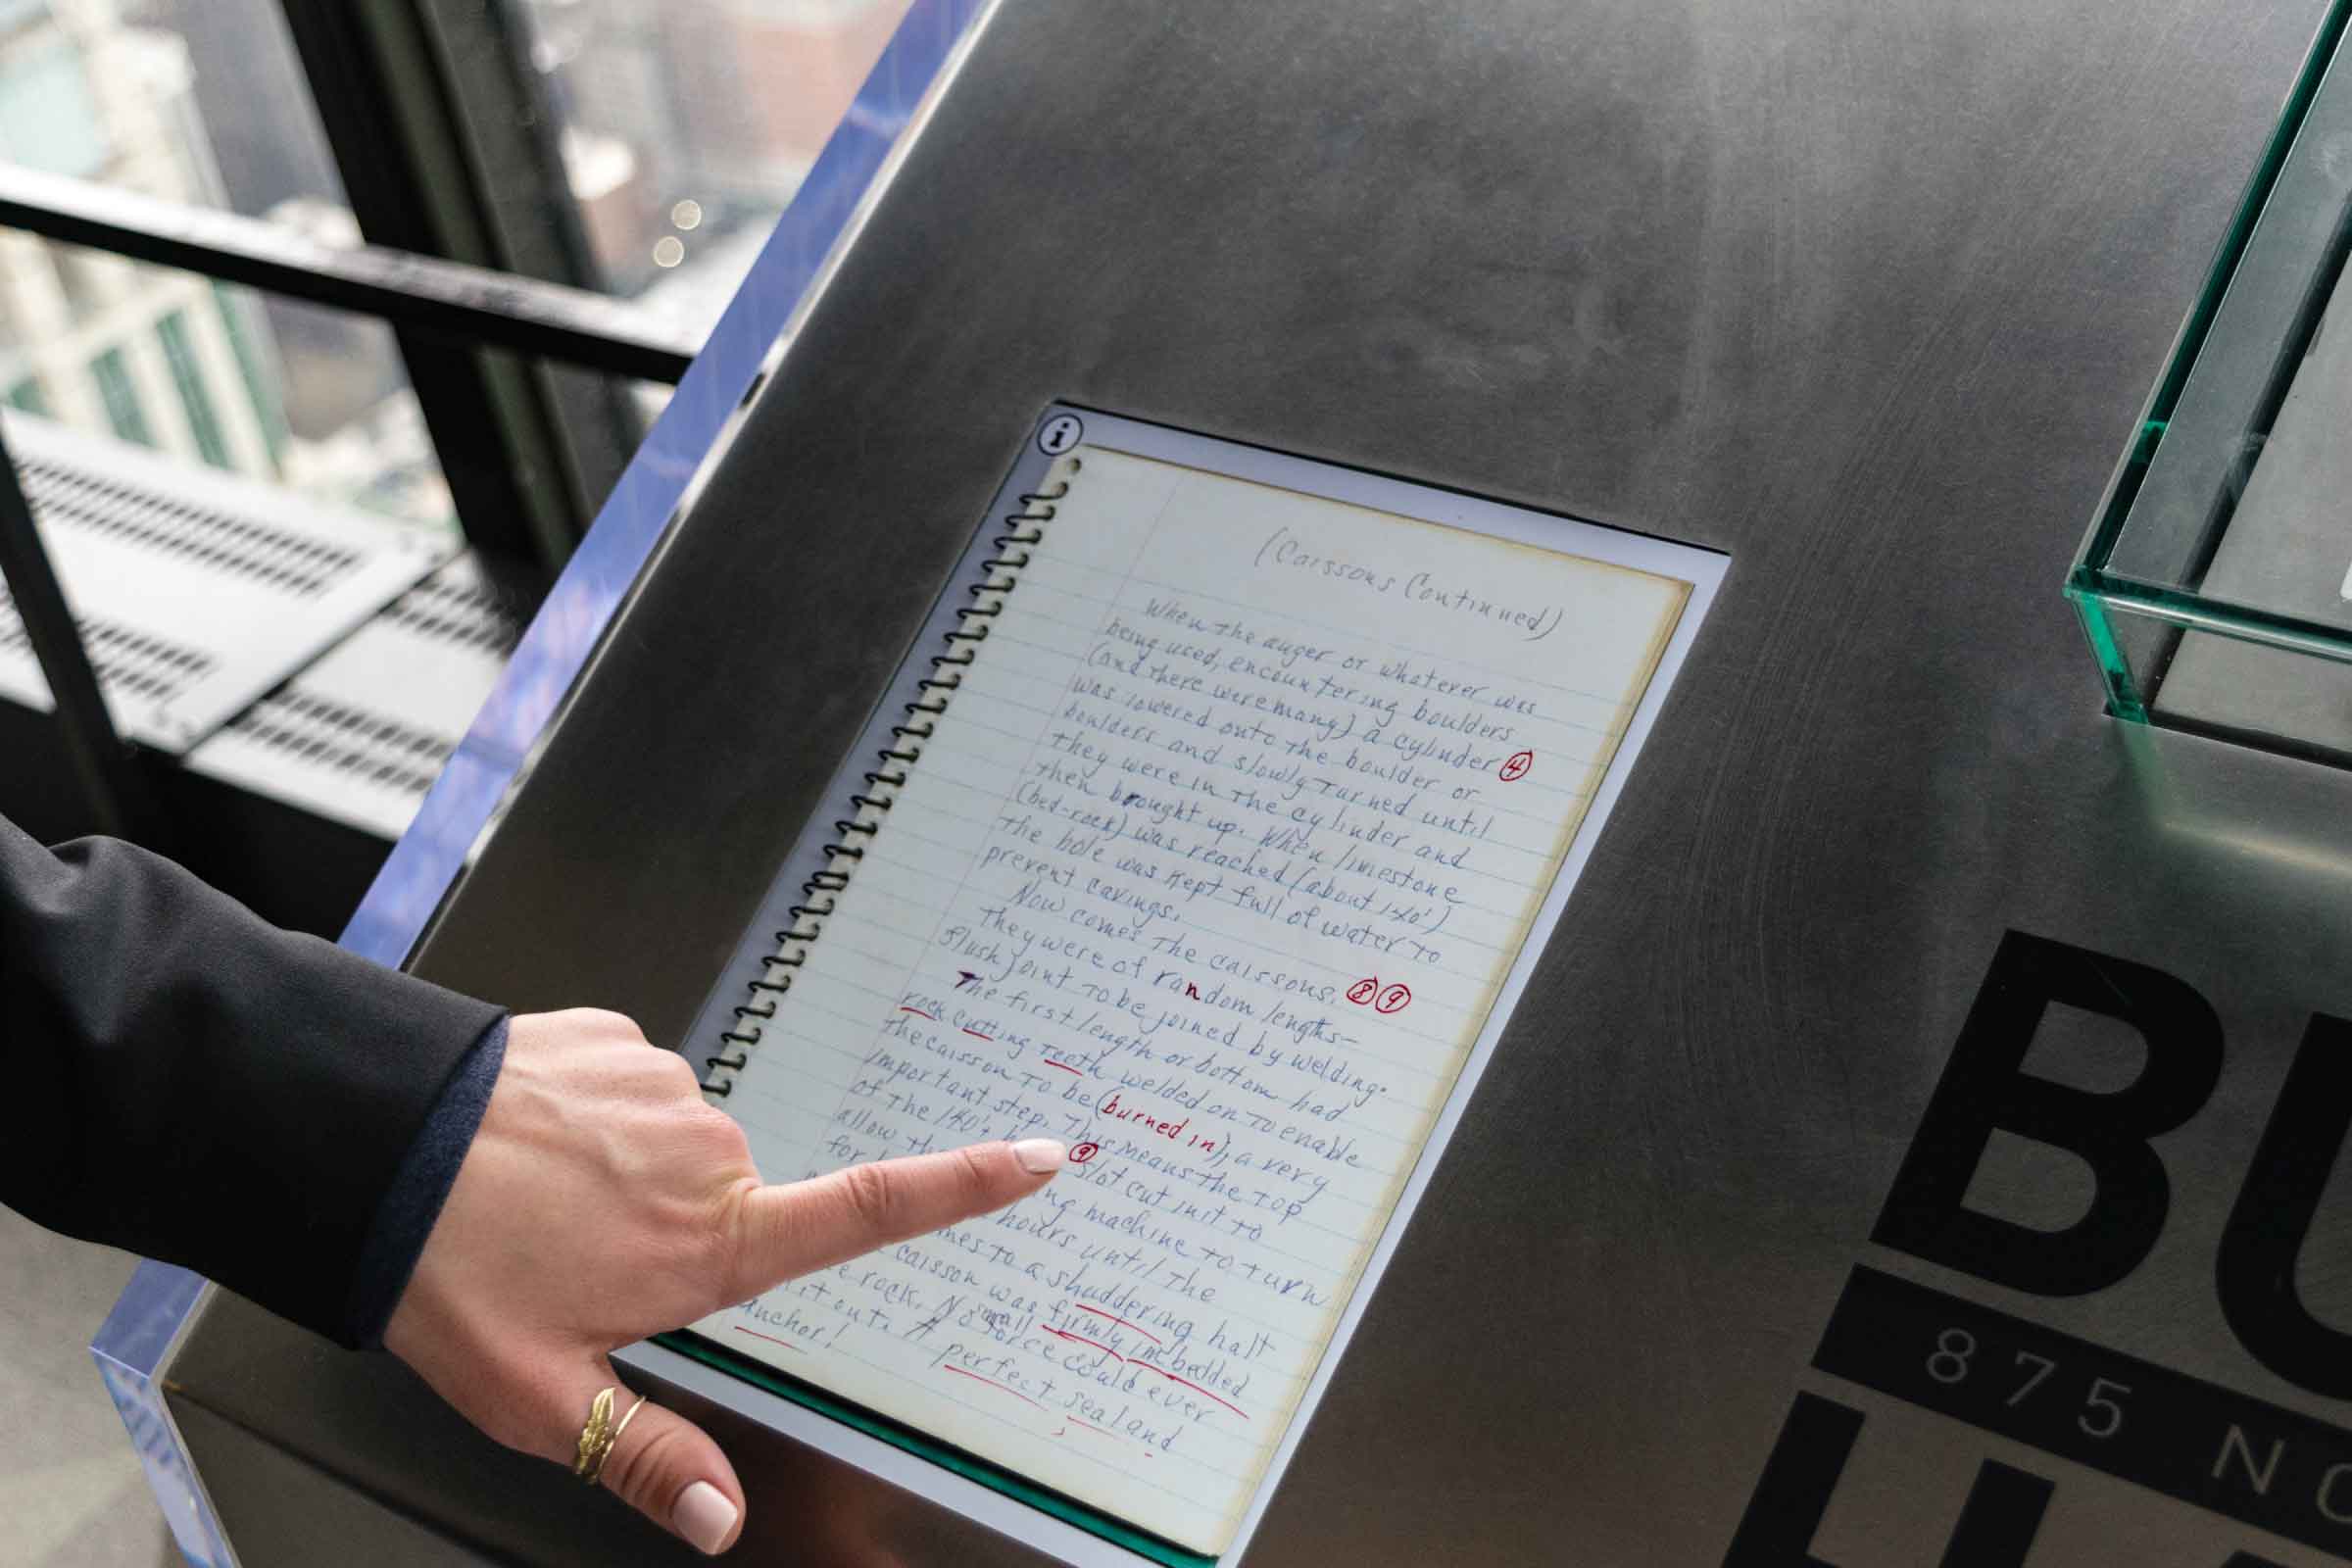 i
(Caissons Continued)
When the auger or whatever was
being used, encountering boulders
(and there were many) a cylinder ④
was lowered onto the boulder or
boulders and slowly turned until
they were in the cylinder and
then brought up. When limestone
(bed-rock) was reached (about 140')
the hole was kept full of water to
prevent cavings.
Now comes the caissons. ⑧⑨
They were of random lengths-
flush joint to be joined by welding.
The first length or bottom had
rock cutting teeth welded on to enable
the caisson to be (burned in), a very
important step. This means the top
of the 140'± ⑨ slot cut in it to
allow machine to turn
for hours until the
to a shuddering halt
caisson was firmly imbedded
rock. No small force could ever
it out. A perfect seal and
anchor!
BU
875 NO
H